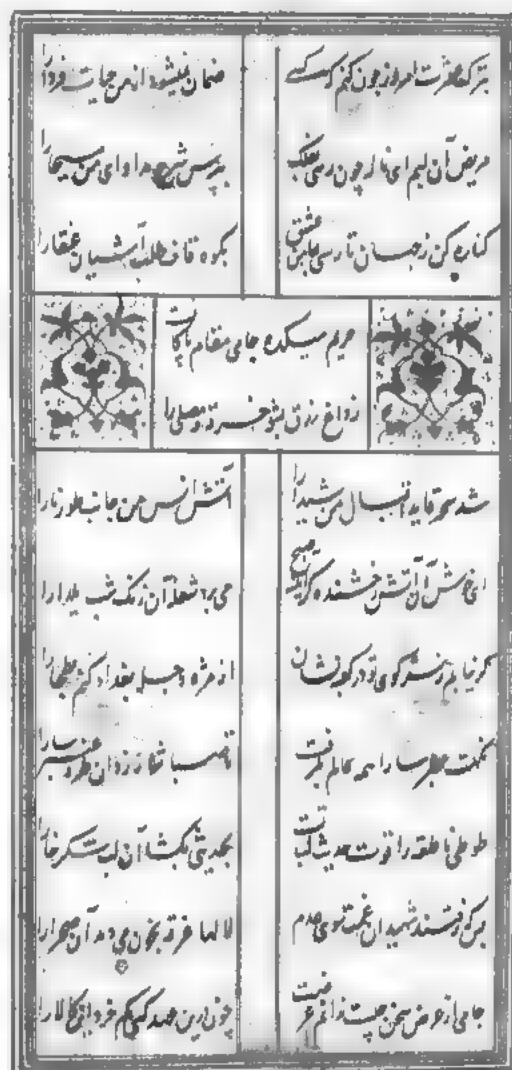 بترک عشرت امروز چون کنم که کسی ضمان نمیشود از من حیات فردا را
مریض آن لبم ای ناله چون رسی بفلک بپرس شرح مداوای من مسیحا را
کناره کن ز جهان تا رسی عشق بکوه قاف طلب آشیان عنقا را
حریم میکده جامی مقام پاکانست
ز داغ رزق بشو خرقه و مصلی را
شد سحر قاید اقبال من شیدا را آتش آنس من جانب طور نارا
ای خوش آن آتش رخشنده صبح می برد شعله آن زنگ شب یلدا را
گر نیابم ز سر کوی تو در کعبه نشان از مژه دجله بغداد کنم بطحا را
نکهت سارا همه عالم بگرفت تا صبا شانه زد آن طره عنبر سا را
طوطی ناطقه را قوت حدیث لب تست بحدیثی بگشا آن لب شکرخا را
بس که رفتند شهیدان غمت سوی عدم لالها غرقه بخون می دمد آن صحرا را
جامی از عرض سخن چیست ندانم غرضت چون درین عهد کسی کم خرد این کالا را